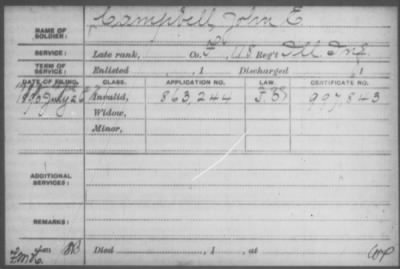 Campbell, John E.
NAME OF SOLDIER:
SERVICE: Late rank, Co. F, 48 Reg't Ill Inf.
TERM OF SERVICE: Enlisted , 1 Discharged , 1
DATE OF FILING. CLASS. APPLICATION NO. LAW. CERTIFICATE NO.
1890 July 26 Invalid, 863,244 997,843
Widow,
Minor,
ADDITIONAL SERVICES:
REMARKS:
Died , 1 , at